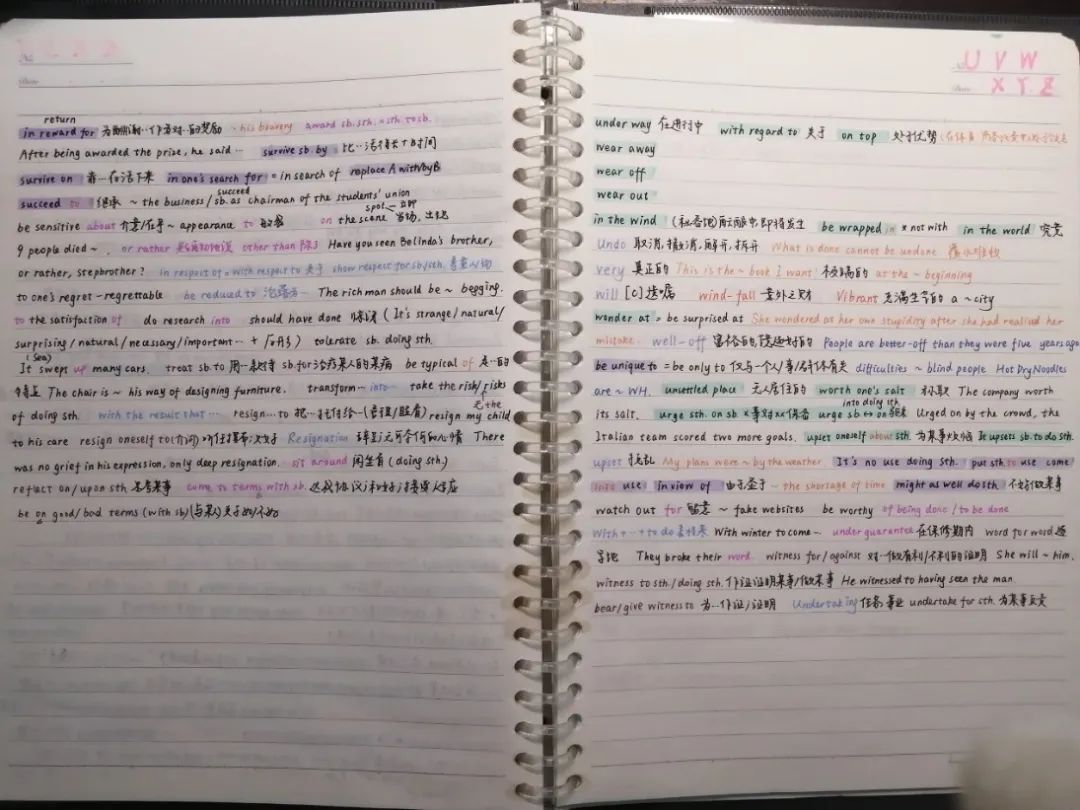 return
in reward for 为酬谢…作为对…的奖励 ~ his bravery award sb. sth. = sth. to sb.
After being awarded the prize, he said… survive sb. by 比…活得长+时间
survive on 靠…存活下来 in one's search for = in search of replace A with/by B
succeed
succeed to 继承 ~ the business / sb. as chairman of the students' union
spot 立即
be sensitive about 介意/在乎 ~ appearance to 敏感 on the scene 当场, 出现
9 people died ~, or rather 更确切地说 other than 除了 Have you seen Belinda's brother,
or rather, stepbrother? in respect of = with respect to 关于 show respect for sb/sth.
to one's regret - regrettable be reduced to 沦落为… The rich man should be ~ begging.
to the satisfaction of do research into should have done 惊讶 (It's strange/natural/
surprising/natural/necessary/important… + 从句) tolerate sb. doing sth.
(sea)
It swept up many cars. treat sb. to 用…款待 sb. for 治疗某人的某病 be typical of 是…的
特点 The chair is ~ his way of designing furniture. transform… into… take the risk/risks
of doing sth. with the result that … resign… to 把…托付给… resign my child
to the
to his care resign oneself to (介词) Resignation There
was no grief in his expression, only deep resignation. sit around 闲坐着 (doing sth.)
reflect on/upon sth 思考某事 come to terms with sb.
be on good/bad terms (with sb) (与某人)关系好/不好
U V W
X Y Z
under way 在进行中 with regard to 关于 on top 处于优势
wear away
wear off
wear out
in the wind 即将发生 be wrapped in × not with in the world 究竟
Undo 取消, 撤消, 解开, 拆开 What is done cannot be undone 覆水难收
very 真正的 This is the ~ book I want! 极端的 at the ~ beginning
will [C] 遗嘱 wind-fall 意外之财 Vibrant 充满生气的 a ~ city
wonder at = be surprised at She wondered at her own stupidity after she had realised her
mistake. well-off 富裕的 People are better-off than they were five years ago
be unique to = be only to 仅与一个人/事/所有有关 difficulties ~ blind people Hot Dry Noodles
are ~ WH. unsettled place 无人居住的 worth one's salt 称职 The company worth
into doing sth
its salt. urge sth. on sb urge sb Urged on by the crowd, the
Italian team scored two more goals. upset oneself about sth. 为某事烦恼 It upsets sb. to do sth.
upset 扰乱 My plans were ~ by the weather. It's no use doing sth. put sth. to use come
into use in view of 由于 … the shortage of time might as well do sth 不妨做某事
watch out for 留意 ~ fake websites be worthy of being done / to be done
With + … + to do 表将来 With winter to come… under guarantee 在保修期内 word for word 逐
字地 They broke their word. witness for/against 对…做有利/不利的证明 She will ~ him.
witness to sth./doing sth. 作证证明某事/做某事 He witnessed to having seen the man.
bear/give witness to 为…作证/证明 Undertaking 任务 事业 undertake for sth. 为某事负责